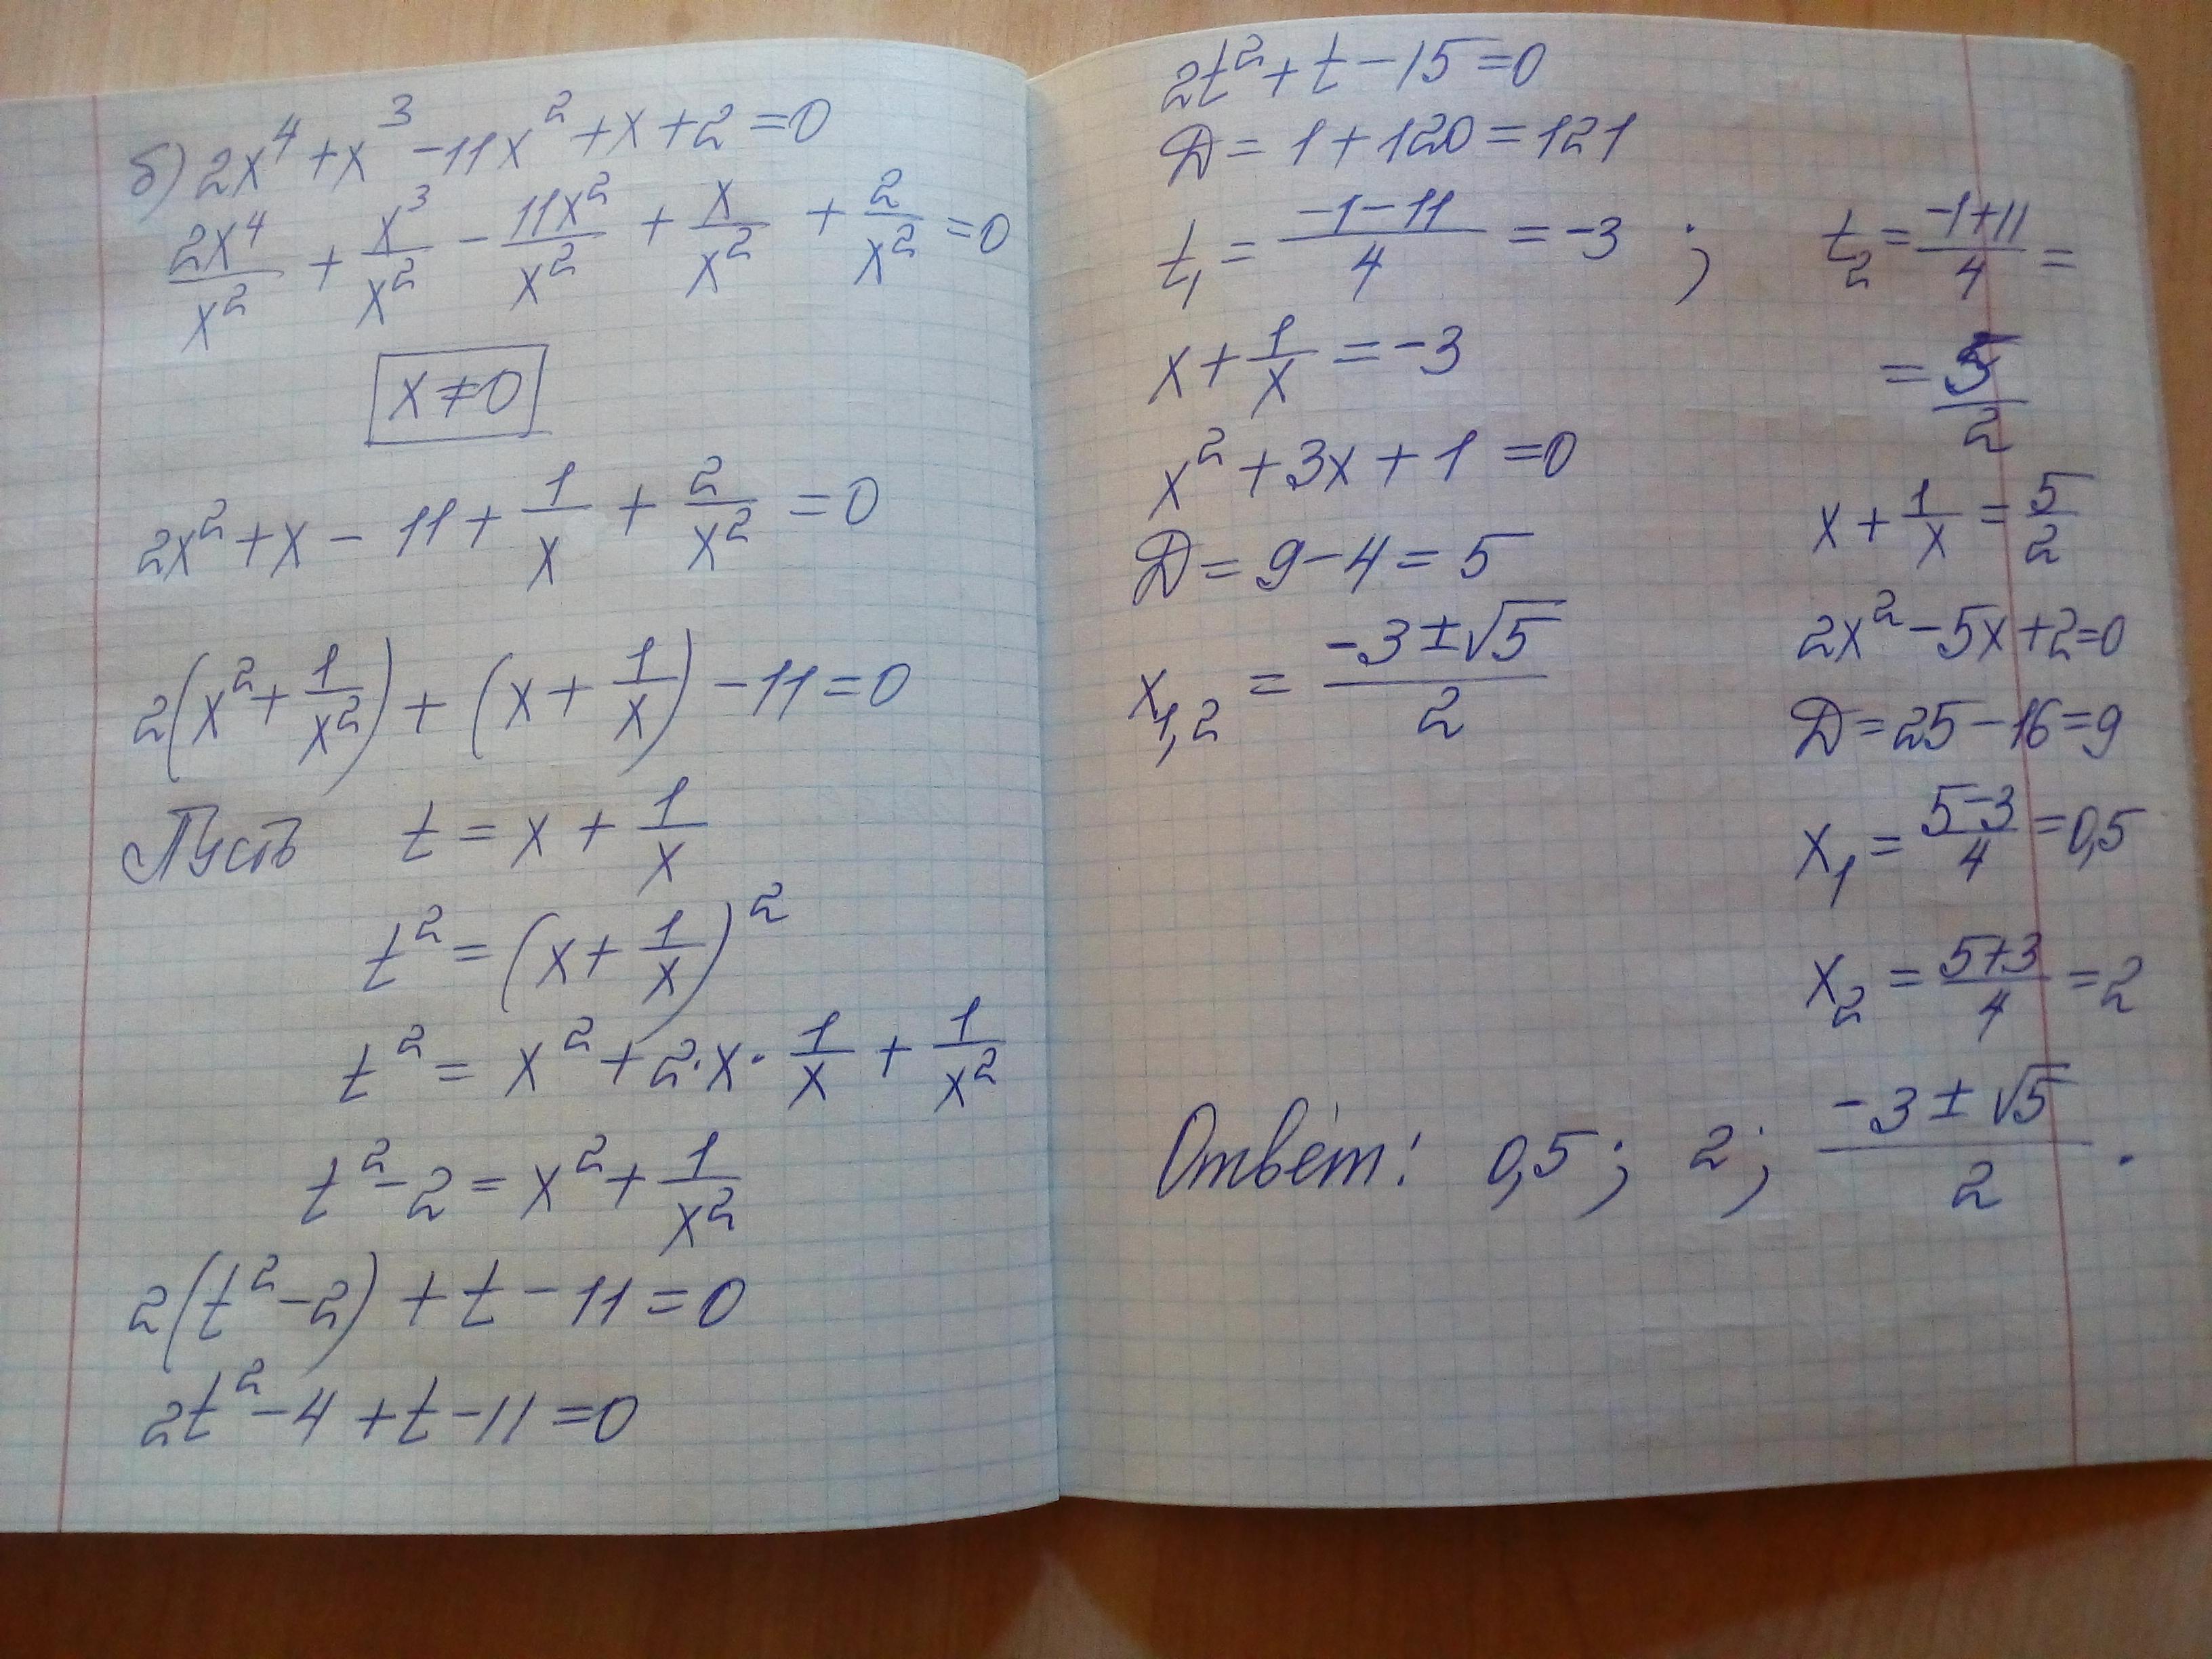 б) 2x⁴ + x³ - 11x² + x + 2 = 0
2x⁴/x² + x³/x² - 11x²/x² + x/x² + 2/x² = 0
x ≠ 0
2x² + x - 11 + 1/x + 2/x² = 0
2(x² + 1/x²) + (x + 1/x) - 11 = 0
Пусть t = x + 1/x
t² = (x + 1/x)²
t² = x² + 2·x·1/x + 1/x²
t² - 2 = x² + 1/x²
2(t² - 2) + t - 11 = 0
2t² - 4 + t - 11 = 0
2t² + t - 15 = 0
D = 1 + 120 = 121
t₁ = (-1 - 11)/4 = -3 ; t₂ = (-1 + 11)/4 =
= 5/2
x + 1/x = -3
x² + 3x + 1 = 0
D = 9 - 4 = 5
x₁,₂ = (-3 ± √5)/2
x + 1/x = 5/2
2x² - 5x + 2 = 0
D = 25 - 16 = 9
x₁ = (5 - 3)/4 = 0,5
x₂ = (5 + 3)/4 = 2
Ответ: 0,5; 2; (-3 ± √5)/2.